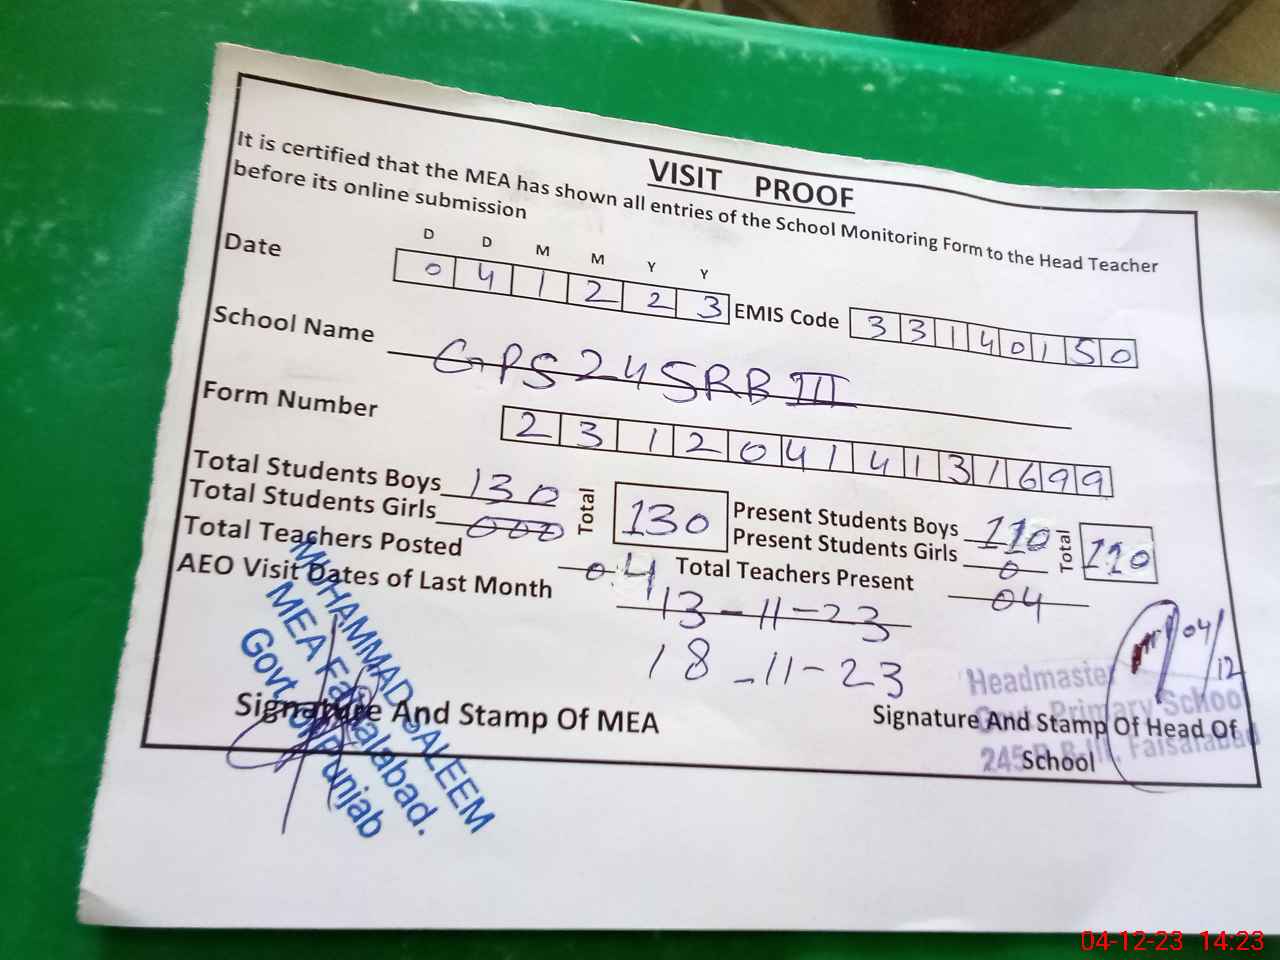 VISIT PROOF
It is certified that the MEA has shown all entries of the School Monitoring Form to the Head Teacher
before its online submission
D D M M Y Y
Date 0 4 1 2 2 3 EMIS Code 3 3 1 4 0 1 5 0
School Name GPS 245RB III
Form Number 2 3 1 2 0 4 1 4 1 3 1 6 9 9
Total Students Boys 130 Total 130 Present Students Boys 110 Total 110
Total Students Girls 000 Present Students Girls 0
Total Teachers Posted 04 Total Teachers Present 04
AEO Visit Dates of Last Month 13-11-23
18-11-23
04/12
MUHAMMAD SALEEM
MEA Faisalabad.
Govt. Of Punjab
Headmaster
Govt. Primary School
245 R.B. III, Faisalabad
Signature And Stamp Of MEA
Signature And Stamp Of Head Of
School
04-12-23 14:23